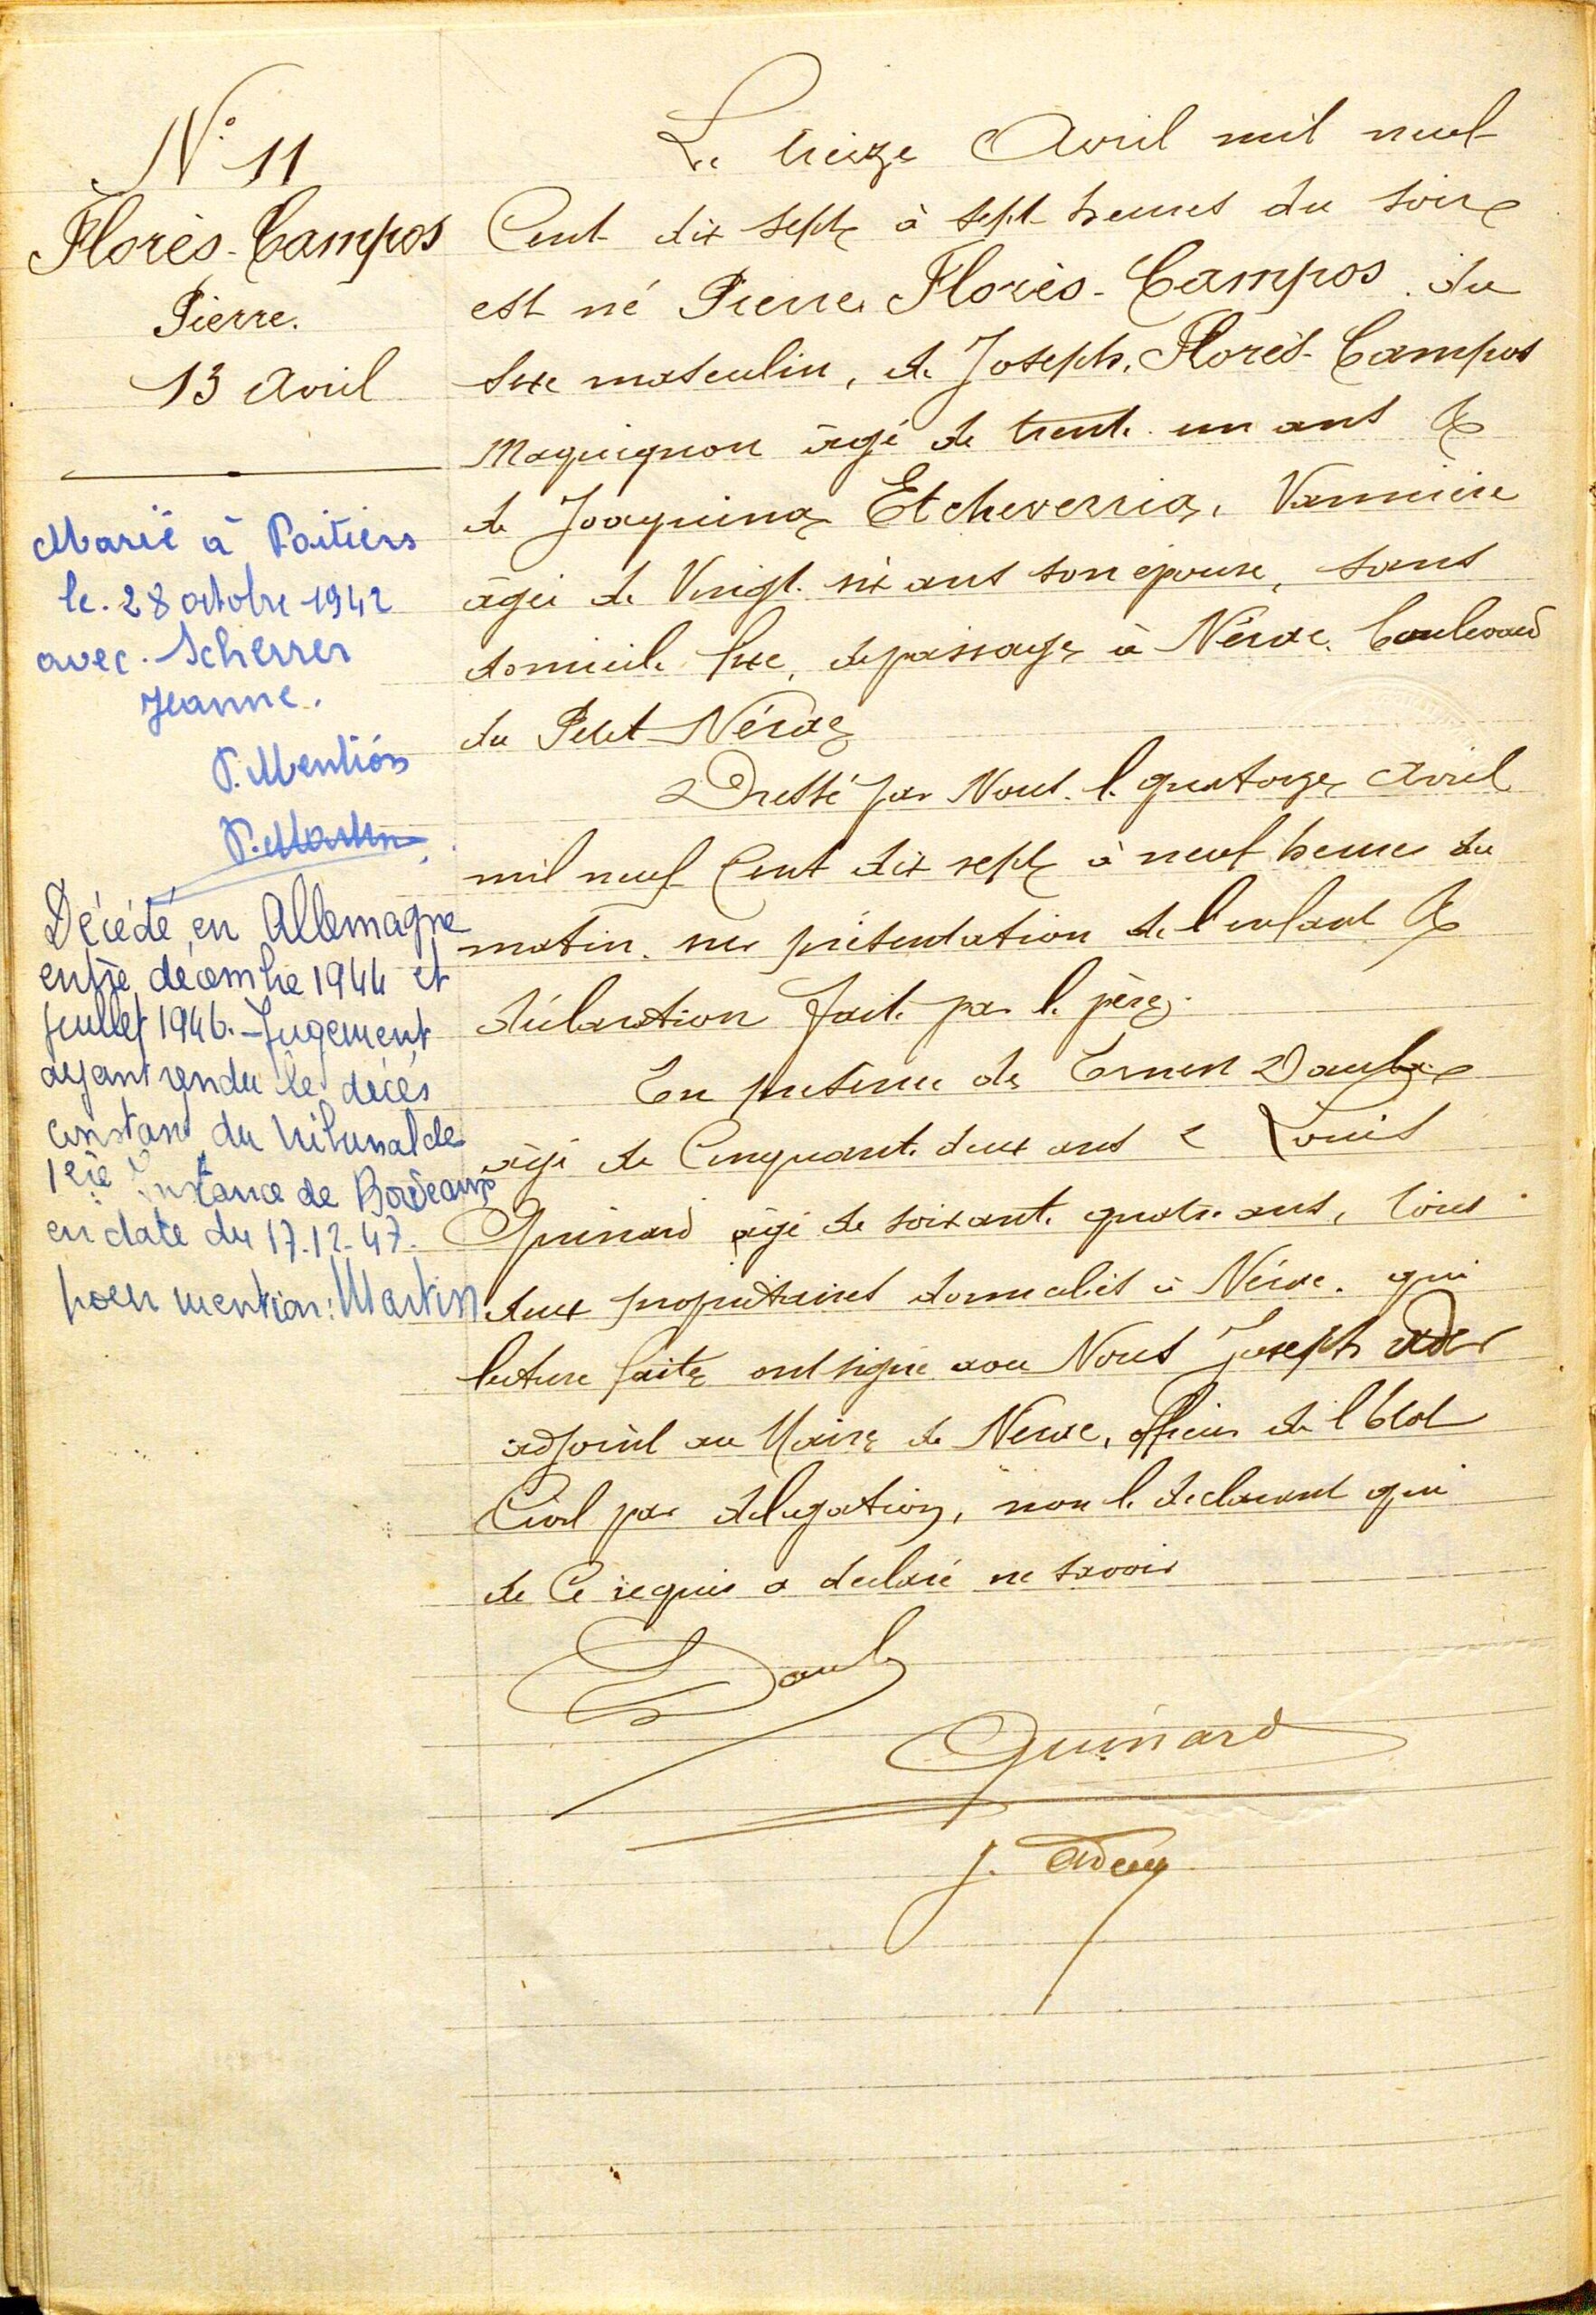 N° 11
Florès-Campos
Pierre.
13 Avril
Marié à Poitiers
le. 28 octobre 1942
avec. Scherrer
Jeanne.
P. Mention
P. Martin
Décédé, en Allemagne
entre décembre 1944 et
Juillet 1946. - Jugement
ayant rendu le décès
constant du tribunal de
1ère Instance de Bordeaux
en date du 17.12.47.
pour mention: Martin
Le treize Avril mil neuf
Cent dix sept, à sept heures du soir
est né Pierre Florès-Campos. du
sexe masculin, de Joseph, Florès-Campos
Maquignon âgé de trente un ans &
de Joaquina Etcheverria, Vannière
âgée de Vingt six ans son épouse, sans
domicile fixe, de passage à Nérac. Boulevard
du Petit Nérac
Dressé par Nous. le quatorze Avril
mil neuf Cent dix sept à neuf heures du
matin. sur présentation de l'enfant &
déclaration faite par le père.
En présence de Ernest
âgé de Cinquante deux ans & Louis
Guinard âgé de soixante quatre ans, tous
deux propriétaires domiciliés à Nérac. qui
lecture faite ont signé avec Nous Joseph Ader
adjoint au Maire de Nérac, officier de l'Etat
Civil par délégation, non le déclarant qui
de Ce requis a déclaré ne savoir
Guinard
J. Ader